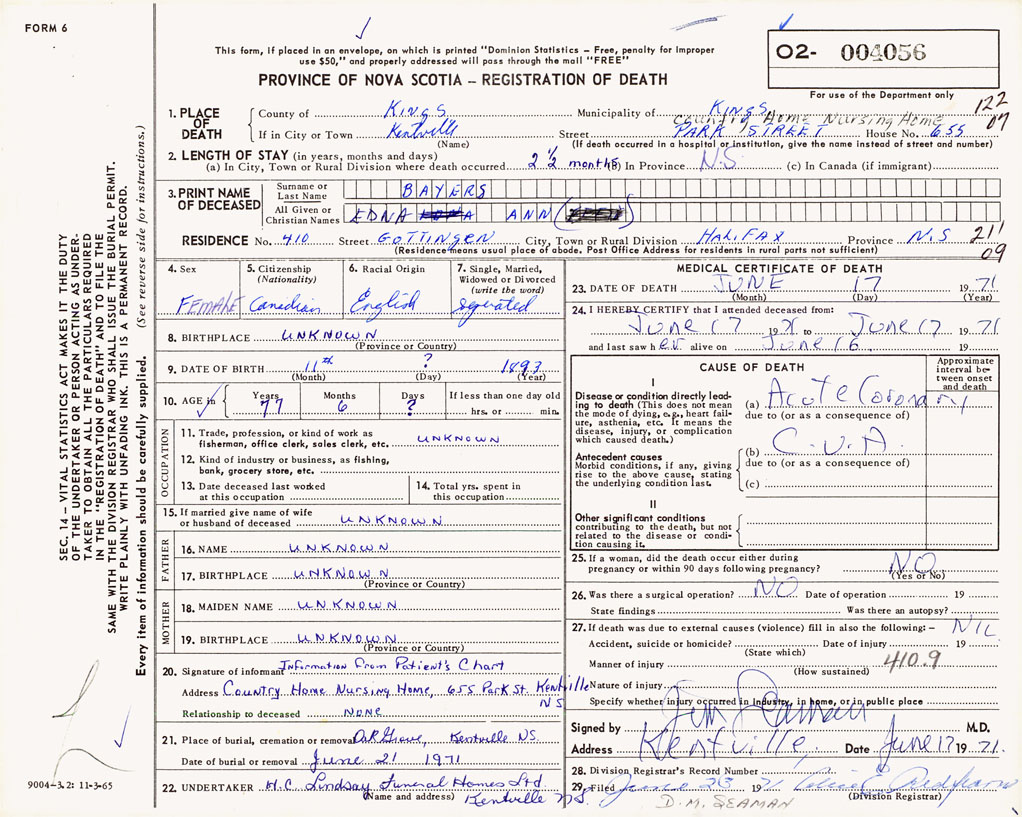 FORM 6
This form, if placed in an envelope, on which is printed "Dominion Statistics – Free, penalty for improper
use $50," and properly addressed will pass through the mail "FREE"
PROVINCE OF NOVA SCOTIA – REGISTRATION OF DEATH
O2- 004056
For use of the Department only
122
07
1. PLACE OF DEATH
County of KINGS Municipality of KINGS
Country Home Nursing Home
If in City or Town Kentville Street PARK STREET House No. 655
(Name) (If death occurred in a hospital or institution, give the name instead of street and number)
2. LENGTH OF STAY (in years, months and days)
(a) In City, Town or Rural Division where death occurred 2 1/2 months (b) In Province N.S. (c) In Canada (if immigrant)
3. PRINT NAME OF DECEASED
Surname or Last Name BAYERS
All Given or Christian Names EDNA ANN
RESIDENCE No. 410 Street GOTTINGEN City, Town or Rural Division HALIFAX Province N.S
(Residence means usual place of abode. Post Office Address for residents in rural parts not sufficient)
211
09
4. Sex FEMALE
5. Citizenship (Nationality) Canadian
6. Racial Origin English
7. Single, Married, Widowed or Divorced (write the word) Separated
8. BIRTHPLACE UNKNOWN
(Province or Country)
9. DATE OF BIRTH 11th ? 1893
(Month) (Day) (Year)
10. AGE in Years 77 Months 6 Days ? If less than one day old hrs. or min.
OCCUPATION
11. Trade, profession, or kind of work as fisherman, office clerk, sales clerk, etc. UNKNOWN
12. Kind of industry or business, as fishing, bank, grocery store, etc.
13. Date deceased last worked at this occupation
14. Total yrs. spent in this occupation
15. If married give name of wife or husband of deceased UNKNOWN
FATHER
16. NAME UNKNOWN
17. BIRTHPLACE UNKNOWN
(Province or Country)
MOTHER
18. MAIDEN NAME UNKNOWN
19. BIRTHPLACE UNKNOWN
(Province or Country)
20. Signature of informant Information From Patient's Chart
Address Country Home Nursing Home, 655 Park St. Kentville NS
Relationship to deceased NONE
21. Place of burial, cremation or removal Oak Grove, Kentville NS.
Date of burial or removal June 21 1971
22. UNDERTAKER H.C. Lindsay Funeral Homes Ltd
(Name and address) Kentville NS.
MEDICAL CERTIFICATE OF DEATH
23. DATE OF DEATH JUNE 17 1971
(Month) (Day) (Year)
24. I HEREBY CERTIFY that I attended deceased from:
June 17 1971 to June 17 1971
and last saw her alive on June 16 19
CAUSE OF DEATH
Approximate interval between onset and death
I
Disease or condition directly leading to death (This does not mean the mode of dying, e.g., heart failure, asthenia, etc. It means the disease, injury, or complication which caused death.)
(a) Acute Coronary
due to (or as a consequence of)
Antecedent causes
Morbid conditions, if any, giving rise to the above cause, stating the underlying condition last.
(b) C.V.A.
due to (or as a consequence of)
(c)
II
Other significant conditions
contributing to the death, but not related to the disease or condition causing it.
25. If a woman, did the death occur either during pregnancy or within 90 days following pregnancy? NO
(Yes or No)
26. Was there a surgical operation? NO Date of operation 19
State findings Was there an autopsy?
27. If death was due to external causes (violence) fill in also the following: – NIL
Accident, suicide or homicide? Date of injury 19
(State which)
Manner of injury 410.9
(How sustained)
Nature of injury
Specify whether injury occurred in Industry, in home, or in public place
Signed by M.D.
Address Kentville, Date June 17 1971.
28. Division Registrar's Record Number
29. Filed 1971
(Division Registrar)
D.M. SEAMAN
SEC. 14 – VITAL STATISTICS ACT MAKES IT THE DUTY
OF THE UNDERTAKER OR PERSON ACTING AS UNDER-
TAKER TO OBTAIN ALL THE PARTICULARS REQUIRED
IN THE "REGISTRATION OF DEATH" AND TO FILE THE
SAME WITH THE DIVISION REGISTRAR WHO SHALL ISSUE THE BURIAL PERMIT.
WRITE PLAINLY WITH UNFADING INK. THIS IS A PERMANENT RECORD.
Every item of information should be carefully supplied. (See reverse side for instructions.)
9004-3.2: 11-3-65